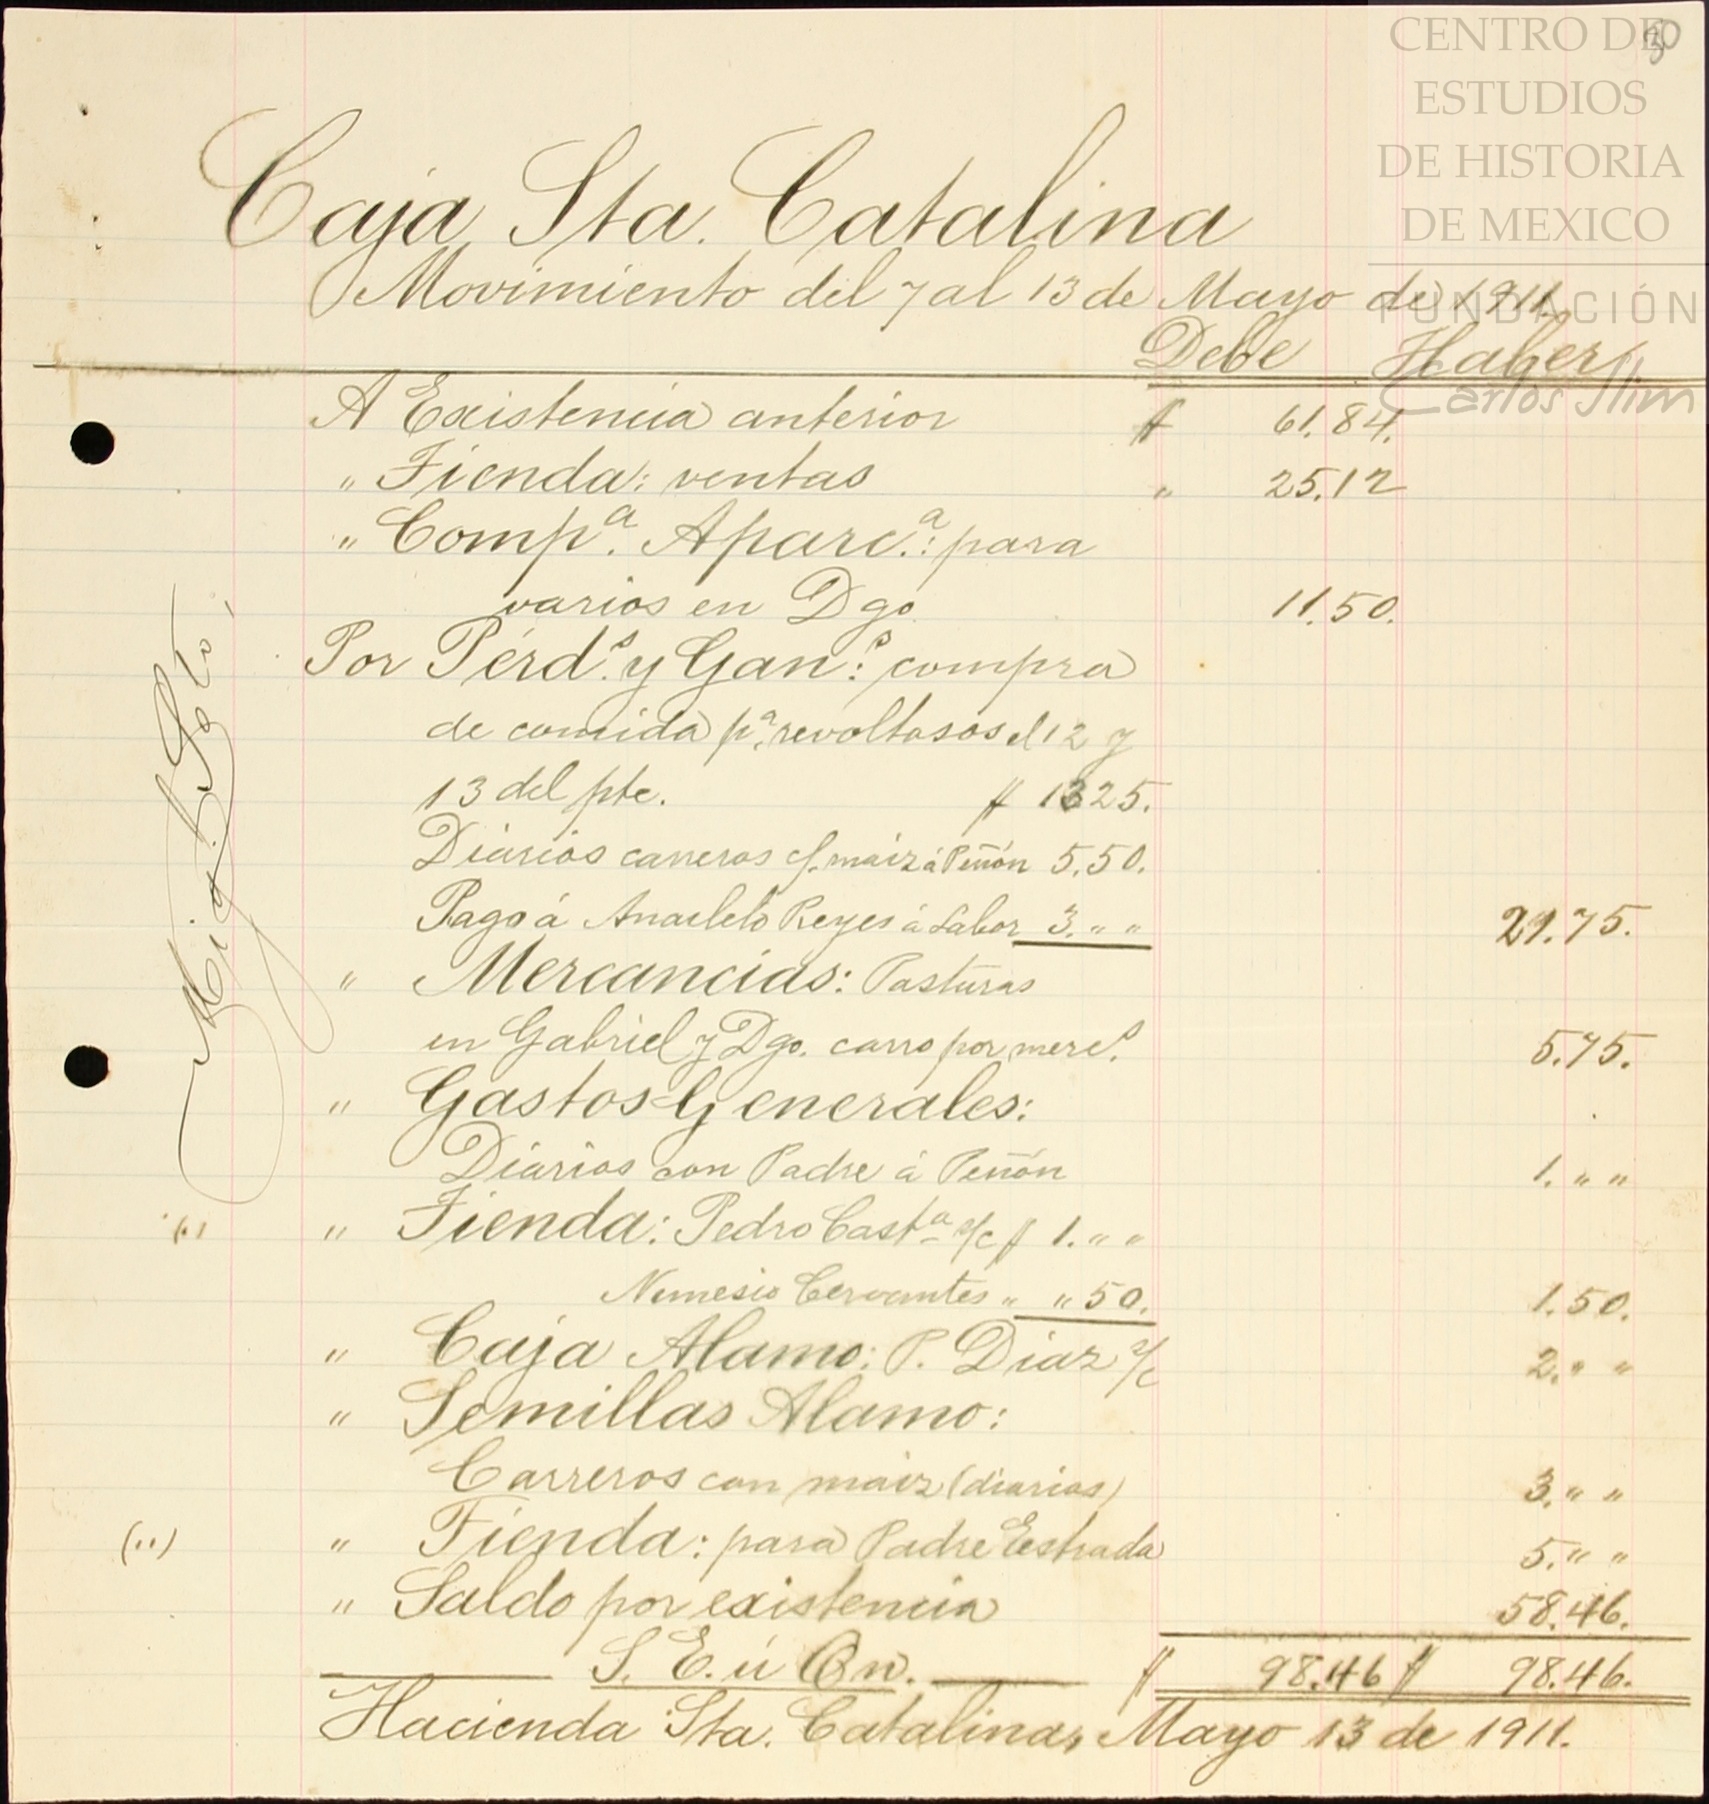 CENTRO DE
ESTUDIOS
DE HISTORIA
DE MEXICO
FUNDACIÓN
Carlos Slim
Caja Sta. Catalina
Movimiento del 7 al 13 de Mayo de 1911.
Debe Haber
A Existencia anterior $ 61.84.
" Tienda: ventas " 25.12
" Compª. Aparcª.: para
varios en Dgo. 11.50.
Por Pérds. y Gans.: compra
de comida pª. revoltosos el 12 y
13 del pte. $ 1325.
Diarios carreros c/. maíz á Peñón 5.50.
Pago á Anacleto Reyes á Labor 3. " " 21.75.
" Mercancías: Pasturas
en Gabriel y Dgo. carro por mercs. 5.75.
" Gastos Generales:
Diarios con Padre á Peñón 1. " "
(.) " Tienda: Pedro Castª a/c $ 1. " "
Nemesio Cervantes " " 50. 1.50.
" Caja Alamo: P. Díaz a/c 2. " "
" Semillas Alamo:
Carreros con maíz (diarios) 3. " "
(..) " Tienda: para Padre Estrada 5. " "
" Saldo por existencia 58.46.
S. E. ú On. $ 98.46 $ 98.46.
Hacienda Sta. Catalina, Mayo 13 de 1911.